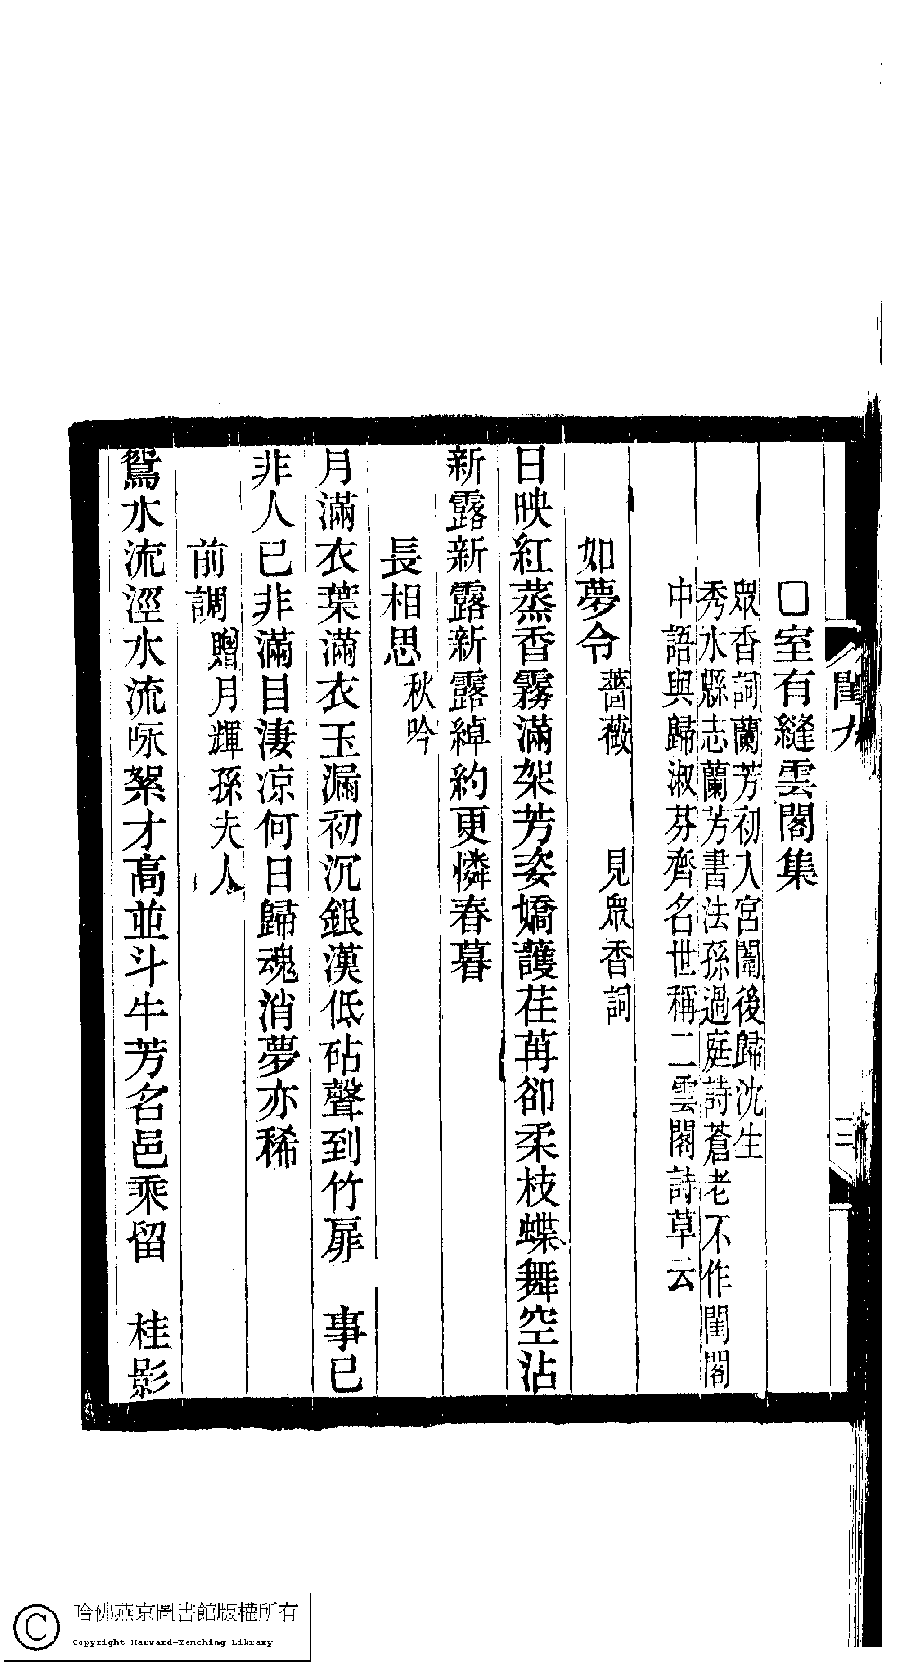 閨九
三
□室有縫雲閣集
眾香詞蘭芳初入宮闈後歸沈生
秀水縣志蘭芳書法孫過庭詩蒼老不作閨閣
中語與歸淑芬齊名世稱二雲閣詩草云
如夢令 薔薇 見眾香詞
日映紅蒸香霧滿架芳姿嬌護荏苒卻柔枝蝶舞空沾
新露新露新露綽約更憐春暮
長相思 秋吟
月滿衣葉滿衣玉漏初沉銀漢低砧聲到竹扉 事已
非人已非滿目淒凉何日歸魂消夢亦稀
前調 贈月輝孫夫人
鴛水流涇水流咏絮才高並斗牛芳名邑乘留 桂影
哈佛燕京圖書館版權所有
Copyright Harvard-Yenching Library